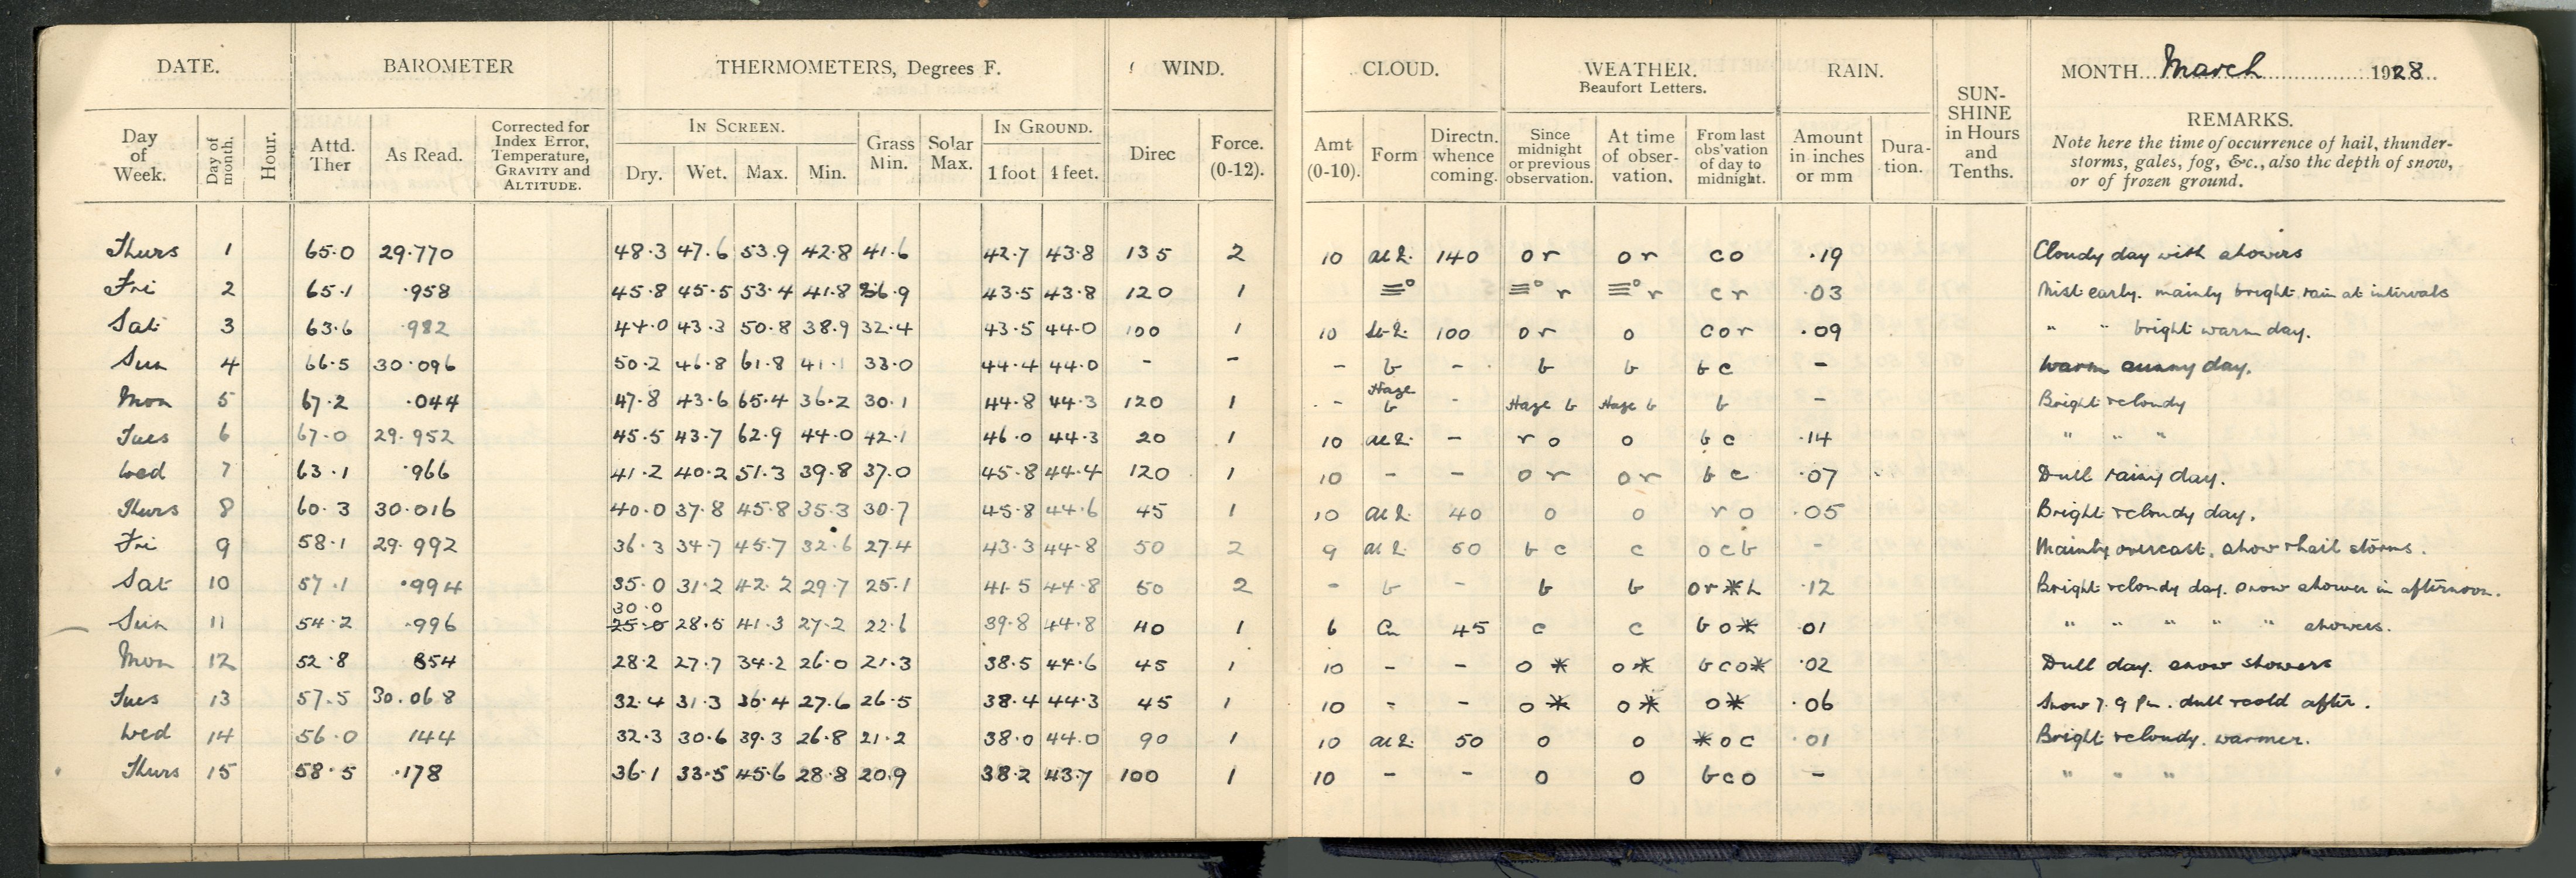 DATE. BAROMETER THERMOMETERS, Degrees F. WIND. CLOUD. WEATHER. RAIN. MONTH March 1928
Beaufort Letters.
Day of Week. Day of month. Hour. Attd. Ther As Read. Corrected for Index Error, Temperature, GRAVITY and ALTITUDE. IN SCREEN. Dry. Wet. Max. Min. Grass Min. Solar Max. IN GROUND. 1 foot 4 feet. Direc Force. (0-12). Amt (0-10). Form Directn. whence coming. Since midnight or previous observation. At time of obser- vation. From last obs'vation of day to midnight. Amount in inches or mm Dura- tion. SUN- SHINE in Hours and Tenths. REMARKS.
Note here the time of occurrence of hail, thunder-
storms, gales, fog, &c., also the depth of snow,
or of frozen ground.
Thurs 1 65.0 29.770 48.3 47.6 53.9 42.8 41.6 42.7 43.8 135 2 10 140 o r o r c o .19 Cloudy day with showers
Fri 2 65.1 .958 45.8 45.5 53.4 41.8 36.9 43.5 43.8 120 1 ≡° ≡° r ≡° r c r .03 Mist early. mainly bright rain at intervals
Sat 3 63.6 .982 44.0 43.3 50.8 38.9 32.4 43.5 44.0 100 1 10 100 o r o c o r .09 " " bright warm day.
Sun 4 66.5 30.096 50.2 46.8 61.8 41.1 33.0 44.4 44.0 - - - b - b b b c - Warm sunny day.
Mon 5 67.2 .044 47.8 43.6 65.4 36.2 30.1 44.8 44.3 120 1 - Haze b - Haze b Haze b b - Bright & cloudy
Tues 6 67.0 29.952 45.5 43.7 62.9 44.0 42.1 46.0 44.3 20 1 10 - r o o b c .14 " " "
Wed 7 63.1 .966 41.2 40.2 51.3 39.8 37.0 45.8 44.4 120 1 10 - - o r o r b c .07 Dull rainy day.
Thurs 8 60.3 30.016 40.0 37.8 45.8 35.3 30.7 45.8 44.6 45 1 10 40 o o r o .05 Bright & cloudy day.
Fri 9 58.1 29.992 36.3 34.7 45.7 32.6 27.4 43.3 44.8 50 2 9 50 b c c o c b - Mainly overcast. snow & hail storms.
Sat 10 57.1 .994 35.0 31.2 42.2 29.7 25.1 41.5 44.8 50 2 - b - b b o r * h .12 Bright & cloudy day. snow shower in afternoon.
Sun 11 54.2 .996 30.0 25.0 28.5 41.3 27.2 22.6 39.8 44.8 40 1 6 Cu 45 c c b o * .01 " " " " " showers.
Mon 12 52.8 854 28.2 27.7 34.2 26.0 21.3 38.5 44.6 45 1 10 - - o * o * b c o * .02 Dull day. snow showers
Tues 13 57.5 30.068 32.4 31.3 36.4 27.6 26.5 38.4 44.3 45 1 10 - - o * o * o * .06 Snow 7.9 Pm. dull & cold after.
Wed 14 56.0 144 32.3 30.6 39.3 26.8 21.2 38.0 44.0 90 1 10 50 o o * o c .01 Bright & cloudy. warmer.
Thurs 15 58.5 .178 36.1 33.5 45.6 28.8 20.9 38.2 43.7 100 1 10 - - o o b c o - " " "